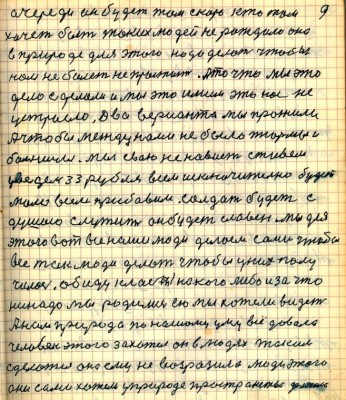 очереди он будет там скоро кто там 9
хочет быть таких людей не рождало оно
в природе для этого надо делат чтобы
нам не болет не простит. Это что мы это
дело сделали и мы это имели это нас не
устроело, два верианта мы прожили
А чтобы между нами не было тюрмы и
болници. Мы свою не навист
уведем 33 рубля всем исключително будет
мало всем прибавим. солдат будет с
душою служить он будет славен мы для
этого вот веками люди делаем сами чтобы
все так люди делат чтобы у них полу
чилос, обиду класт никакого либо и за что
ненадо мы родились ею мы хотели видет
А нам природа по нашому уму всё довала
человек этого захотел он в людях таким
сделался она ему не возразила люди этого
они сами хотели у природе пространства делат